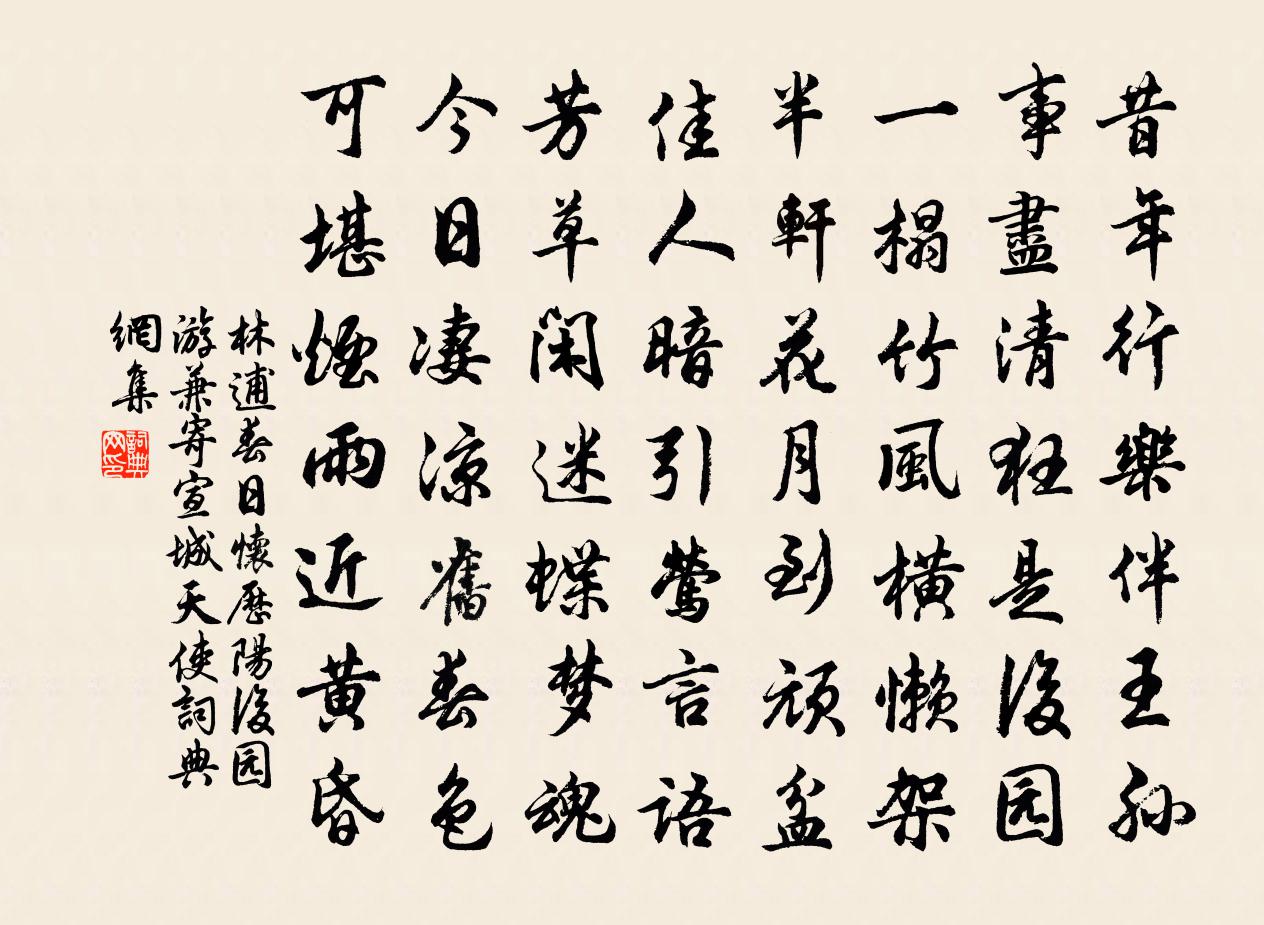 昔年行樂伴王孫
事盡清狂是後园
一榻竹風橫懶架
半軒花月到頑盆
佳人暗引鶯言語
芳草閑迷蝶梦魂
今日凄涼舊春色
可堪煙雨近黃昏
林逋春日懷歷陽後园
游兼寄宣城天使詞典
網集
詞典
网印